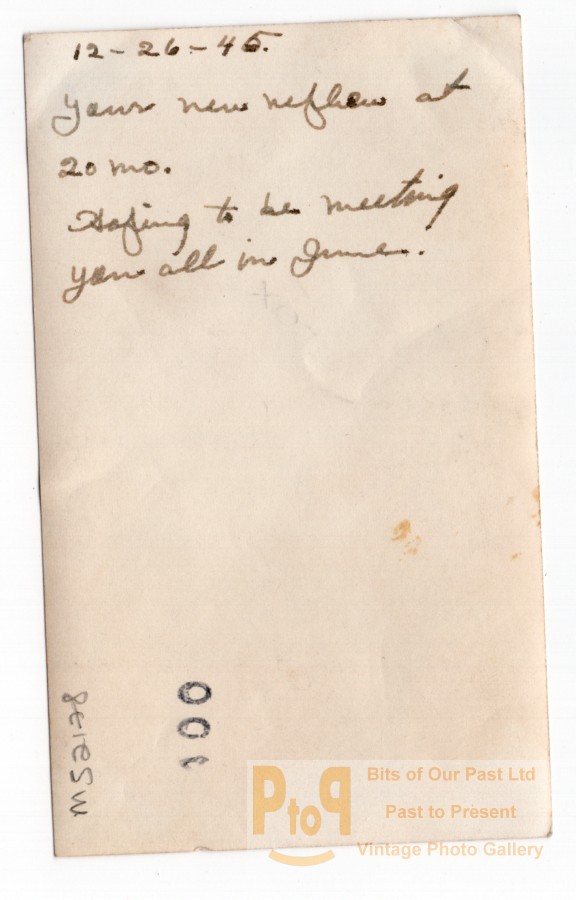 12-26-45.
Your new nefhew at
20 mo.
Hoping to be meeting
you all in June.
100
Bits of Our Past Ltd
PtoP
Past to Present
Vintage Photo Gallery